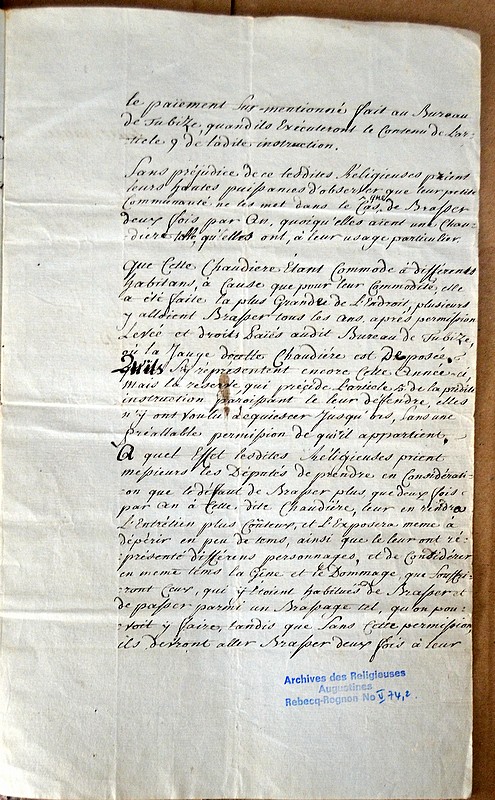 le paiement sur-mentionné fait au Bureau
de Tubize, quand ils Exécuteront le Contenu de L'ar-
-ticle 9 de ladite instruction.
Sans préjudice de ce lesdites Religieuses prient
leurs hautes puissances d'observer que leur petite
Communauté ne les met dans le Cas, que de Brasser
deux fois par An, quoiqu'elles aient une Chau-
diere telle, qu'elles ont, à leur usage particulier.
Que Cette Chaudiere Etant Commode à différents
habitans, à Cause que pour leur Commodité, elle
a été faite la plus Grande de L'Endroit, plusieurs
y alloient Brasser tous les ans, après permission
Levée et droits Paiés audit Bureau de Tubize,
où la Jauge de cette Chaudiere est Deposée.
Qu'ils se représentent encore Cette Année-ci
mais la reserve qui précède L'article 5 de la prédite
instruction paroissant le leur deffendre, elles
n'y ont voulu acquiescer Jusqu'ors, Sans une
préallable permission de qu'il appartient.
A quel Effet lesdites Religieuses prient
messieurs les Députés de prendre en Considérati-
-on que le défaut de Brasser plus que deux fois
par an à Cette dite Chaudiere, leur en rendra
L'Entretien plus Couteux, et L'Exposera meme à
dépérir en peu de tems, ainsi que le leur ont ré-
:présenté différens personnages, et de Considérer
en meme tems la Gène et le Dommage, que Souffri-
-ront Ceux, qui y étoient habitués de Brasser et
de passer parmi un Brassage tel, qu'on pou-
-voit y faire, tandis que Sans Cette permission,
ils devront aller Brasser deux fois à leur
Archives des Religieuses
Augustines
Rebecq-Rognon No V 74,2